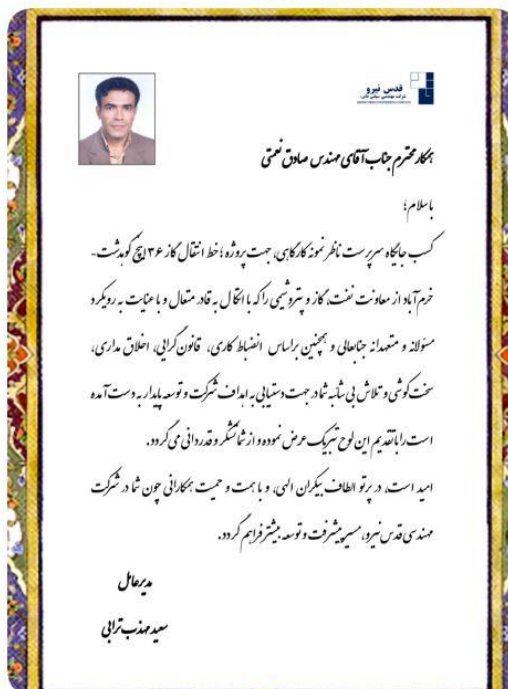 قدس نیرو
همکار محترم جناب آقای مهندس صادق نعمتی
باسلام؛
کسب جایگاه سرپرست ناظر نمونه کارگاهی، جهت پروژه؛ خط انتقال گاز ۳۶ اینچ کوهدشت-
خرم آباد از معاونت نفت، گاز و پتروشیمی را که با اتکال به قادر متعال و با عنایت به رویکرد
مسئولانه و متعهدانه جنابعالی و همچنین براساس انضباط کاری، قانون گرایی، اخلاق مداری،
سخت کوشی و تلاش بی شائبه شما در جهت دستیابی به اهداف شرکت و توسعه پایدار به دست آمده
است را با تقدیم این لوح تبریک عرض نموده و از شما تشکر و قدردانی می گردد.
امید است، در پرتو الطاف بیکران الهی، و با همت و حمیت همکارانی چون شما در شرکت
مهندسی قدس نیرو، مسیر پیشرفت و توسعه بیشتر فراهم گردد.
مدیرعامل
سعید مهذب ترابی